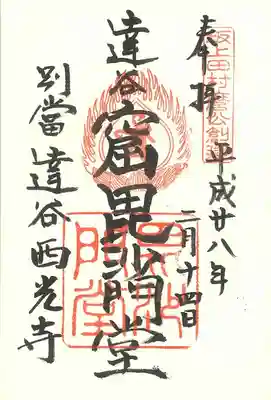 坂上田村麿公創建
奉拝
平成廿八年
二月十四日
達谷窟毘沙門堂
別當達谷西光寺